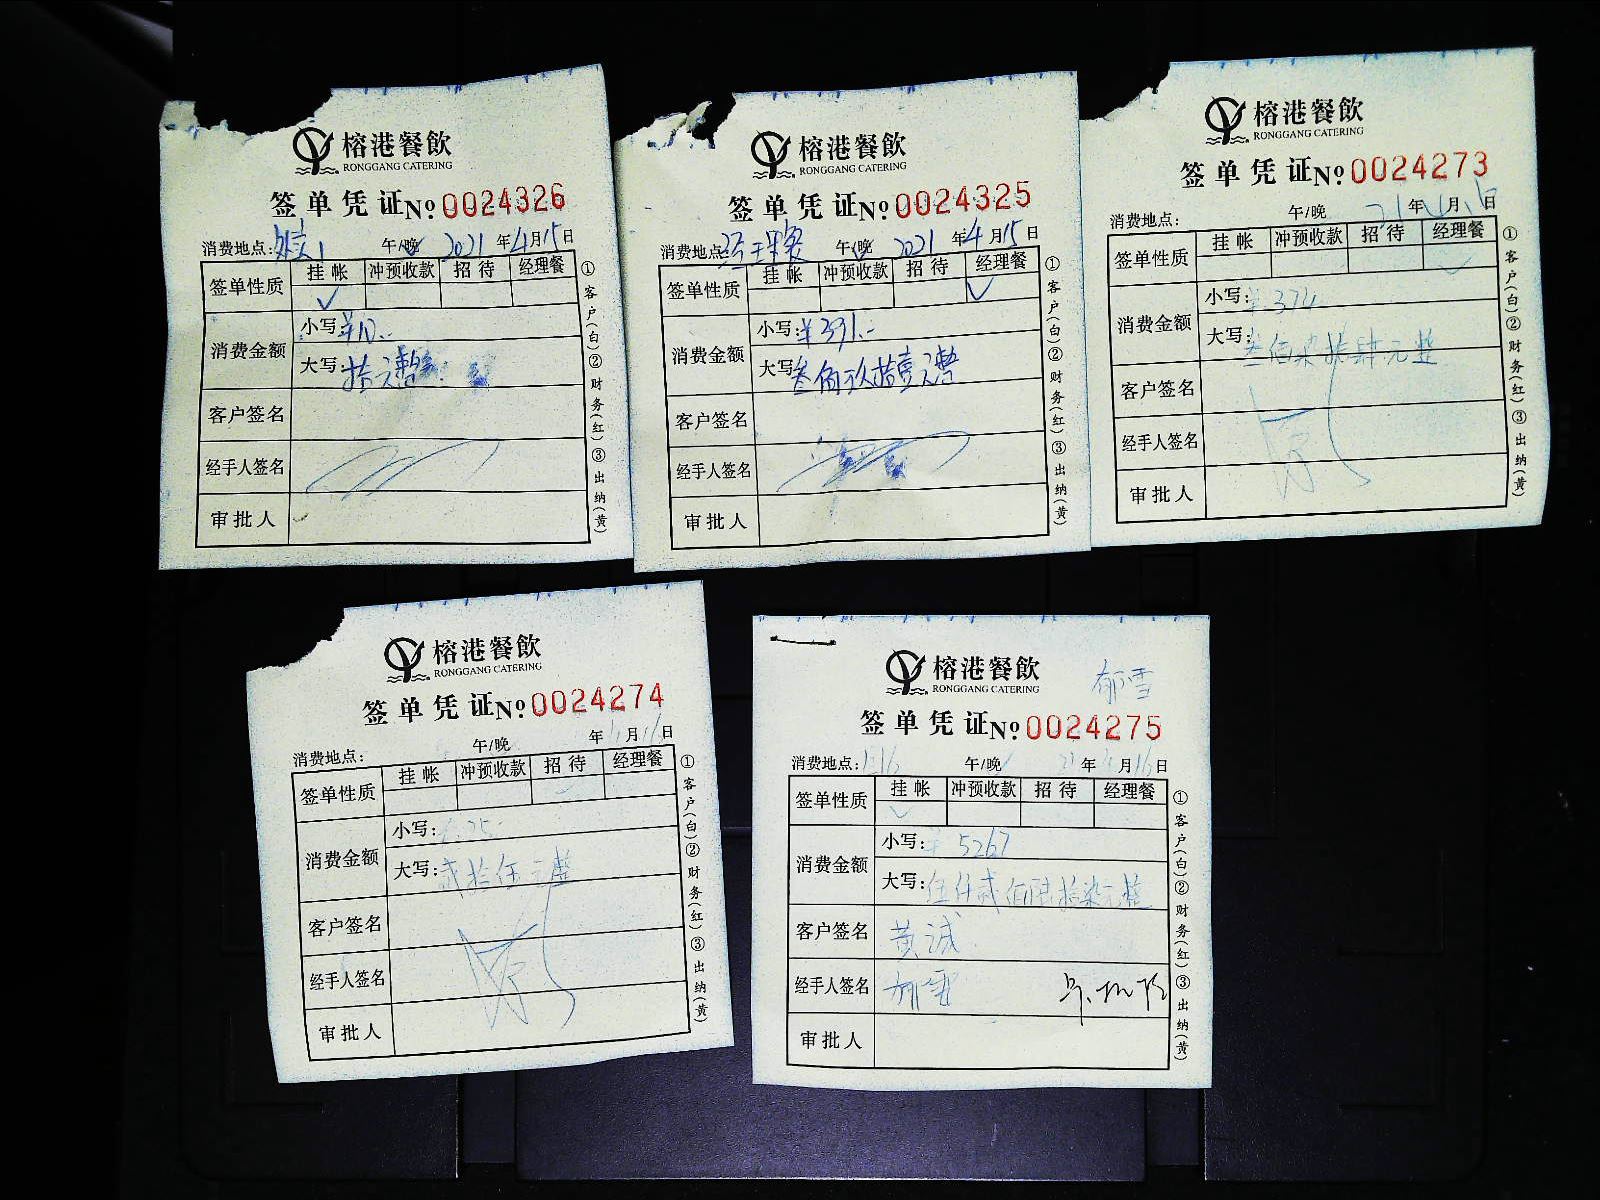 榕港餐飲
RONGGANG CATERING
签单凭证 No 0024326
消费地点: 外卖1 午/晚 2021年4月15日
签单性质 挂帐 冲预收款 招待 经理餐
✓
消费金额 小写: ¥10.-
大写: 拾元整
客户签名
经手人签名
审批人
①客户(白)②财务(红)③出纳(黄)
榕港餐飲
RONGGANG CATERING
签单凭证 No 0024325
消费地点: 经理餐 午/晚 2021年4月15日
签单性质 挂帐 冲预收款 招待 经理餐
✓
消费金额 小写: ¥391.-
大写: 叁佰玖拾壹元整
客户签名
经手人签名
审批人
①客户(白)②财务(红)③出纳(黄)
榕港餐飲
RONGGANG CATERING
签单凭证 No 0024273
消费地点: 午/晚 21年 月 日
签单性质 挂帐 冲预收款 招待 经理餐
✓
消费金额 小写: ¥374
大写: 叁佰柒拾肆元整
客户签名
经手人签名
审批人
①客户(白)②财务(红)③出纳(黄)
榕港餐飲
RONGGANG CATERING
签单凭证 No 0024274
消费地点: 午/晚 年 月16日
签单性质 挂帐 冲预收款 招待 经理餐
消费金额 小写: 25
大写: 贰拾伍元整
客户签名
经手人签名
审批人
①客户(白)②财务(红)③出纳(黄)
榕港餐飲
RONGGANG CATERING
郁雪
签单凭证 No 0024275
消费地点: 午/晚 21年 月16日
签单性质 挂帐 冲预收款 招待 经理餐
✓
消费金额 小写: ¥5267
大写: 伍仟贰佰陆拾柒元整
客户签名 黄诚
经手人签名 郁雪
审批人
①客户(白)②财务(红)③出纳(黄)